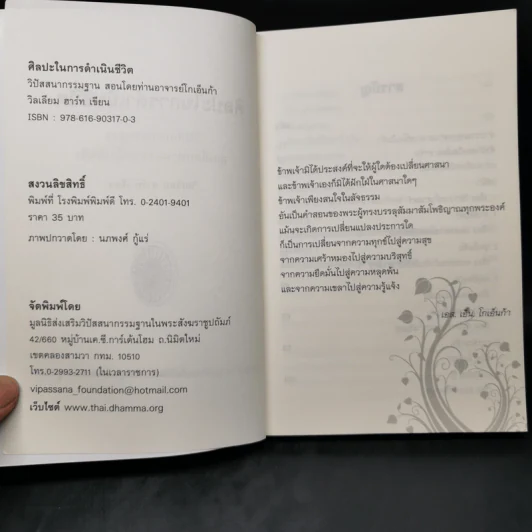 ศิลปะในการดำเนินชีวิต
วิปัสสนากรรมฐาน สอนโดยท่านอาจารย์โกเอ็นก้า
วิลเลียม ฮาร์ท เขียน
ISBN : 978-616-90317-0-3
สงวนลิขสิทธิ์
พิมพ์ที่ โรงพิมพ์พิมพ์ดี โทร. 0-2401-9401
ราคา 35 บาท
ภาพปกวาดโดย : นภพงศ์ กู้แร่
จัดพิมพ์โดย
มูลนิธิส่งเสริมวิปัสสนากรรมฐานในพระสังฆราชูปถัมภ์
42/660 หมู่บ้านเค.ซี.การ์เด้นโฮม ถ.นิมิตใหม่
เขตคลองสามวา กทม. 10510
โทร.0-2993-2711 (ในเวลาราชการ)
vipassana_foundation@hotmail.com
เว็บไซต์ www.thai.dhamma.org
ข้าพเจ้ามิได้ประสงค์ที่จะให้ผู้ใดต้องเปลี่ยนศาสนา
และข้าพเจ้าเองก็มิได้ฝักใฝ่ในศาสนาใดๆ
ข้าพเจ้าเพียงสนใจในสัจธรรม
อันเป็นคำสอนของพระผู้ทรงบรรลุสัมมาสัมโพธิญาณทุกพระองค์
แม้นจะเกิดการเปลี่ยนแปลงประการใด
ก็เป็นการเปลี่ยนจากความทุกข์ไปสู่ความสุข
จากความเศร้าหมองไปสู่ความบริสุทธิ์
จากความยึดมั่นไปสู่ความหลุดพ้น
และจากความเขลาไปสู่ความรู้แจ้ง
เอส. เอ็น. โกเอ็นก้า